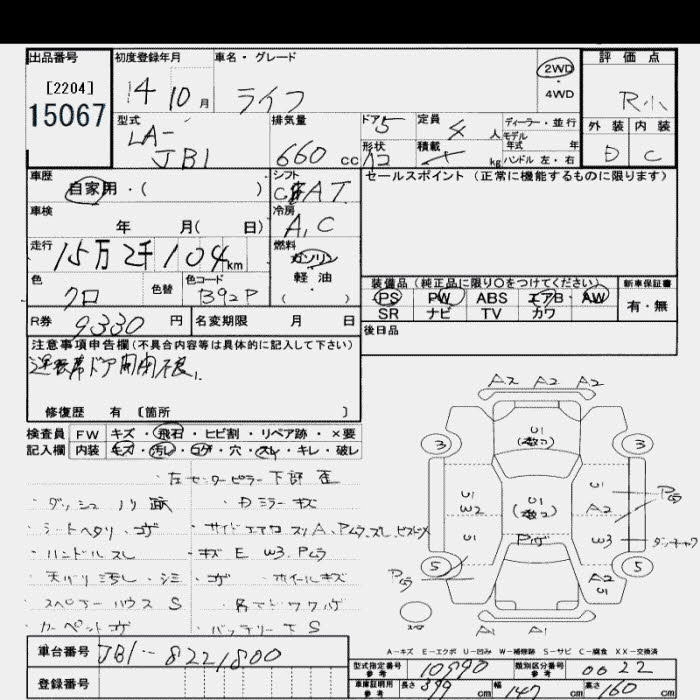 出品番号 初度登録年月 車名・グレード 評価点
[2204] 2WD
15067 14 10月 ライフ ・ R小
4WD
型式 排気量 ドア5 定員 4人 ディーラー・並行 外装 内装
LA- モデル年式 年
JB1 660cc 形状 積載 kg ハンドル 左・右 D C
車歴 シフト セールスポイント(正常に機能するものに限ります)
自家用・( ) AT
車検 冷房
年 月( 日) A,C
走行 燃料
15万2千104km ガソリン
軽油
色 色替 色コード ( )
クロ B92P
装備品(純正品に限り○をつけてください) 新車保証書
PS PW ABS エアB AW 有・無
SR ナビ TV カワ
R券 9330円 名変期限 月 日 後日品
注意事項申告欄(不具合内容等は具体的に記入して下さい)
運転席ドア開閉不良.
修復歴 有 〔箇所 〕
検査員 FW キズ・飛石・ヒビ割・リペア跡・×要
記入欄 内装 キズ・汚レ・コゲ・穴・スレ・キレ・破レ
左センターピラー下部歪
・ダッシュノリ跡 ・Dミラーキズ
・シートヘタリ・コゲ
・ハンドルスレ ・キズE W3.Pムラ
・天バリ汚レ・シミ・コゲ ・ホイールキズ
・スペアーハウスS
・カーペットコゲ ・バッテリーサS
A2 A2 A2
3 U1 3
U1 W2 U1 U1 A2
U1 W3
5 5
A2 U1
A1 A1
A-キズ E-エクボ U-凹み W-補修跡 S-サビ C-腐食 XX-交換済
車台番号 JB1-8221800
登録番号
型式指定番号 参考 10990 類別区分番号 参考 0022
車庫証明用 参考 長さ 339cm 幅 147cm 高さ 160cm